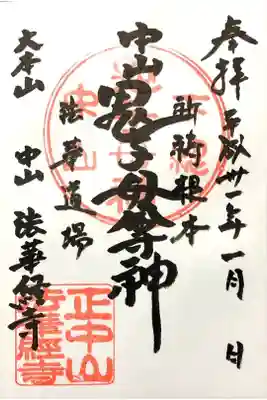 奉拝 平成卅一年一月 日
祈祷根本
中山鬼子母尊神
法華道場
大本山
中山 法華経寺
正中山
法華經寺